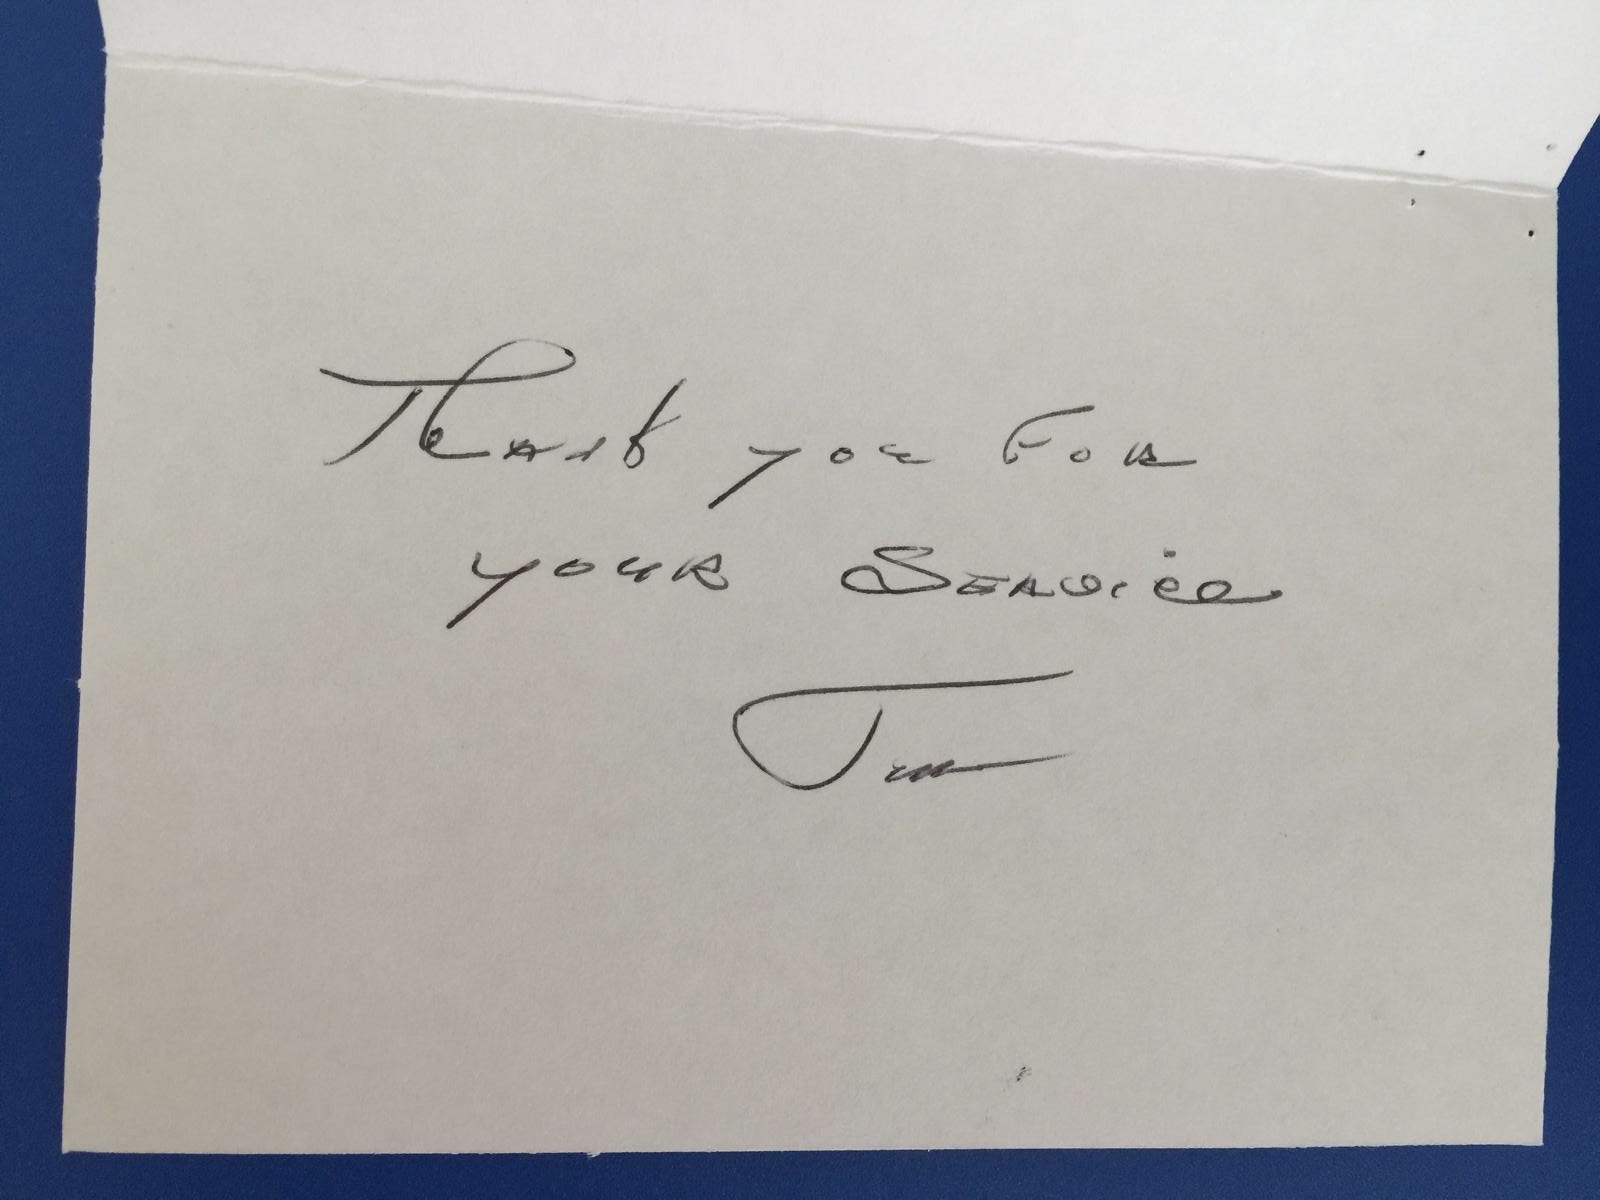 Thank you For
your Service